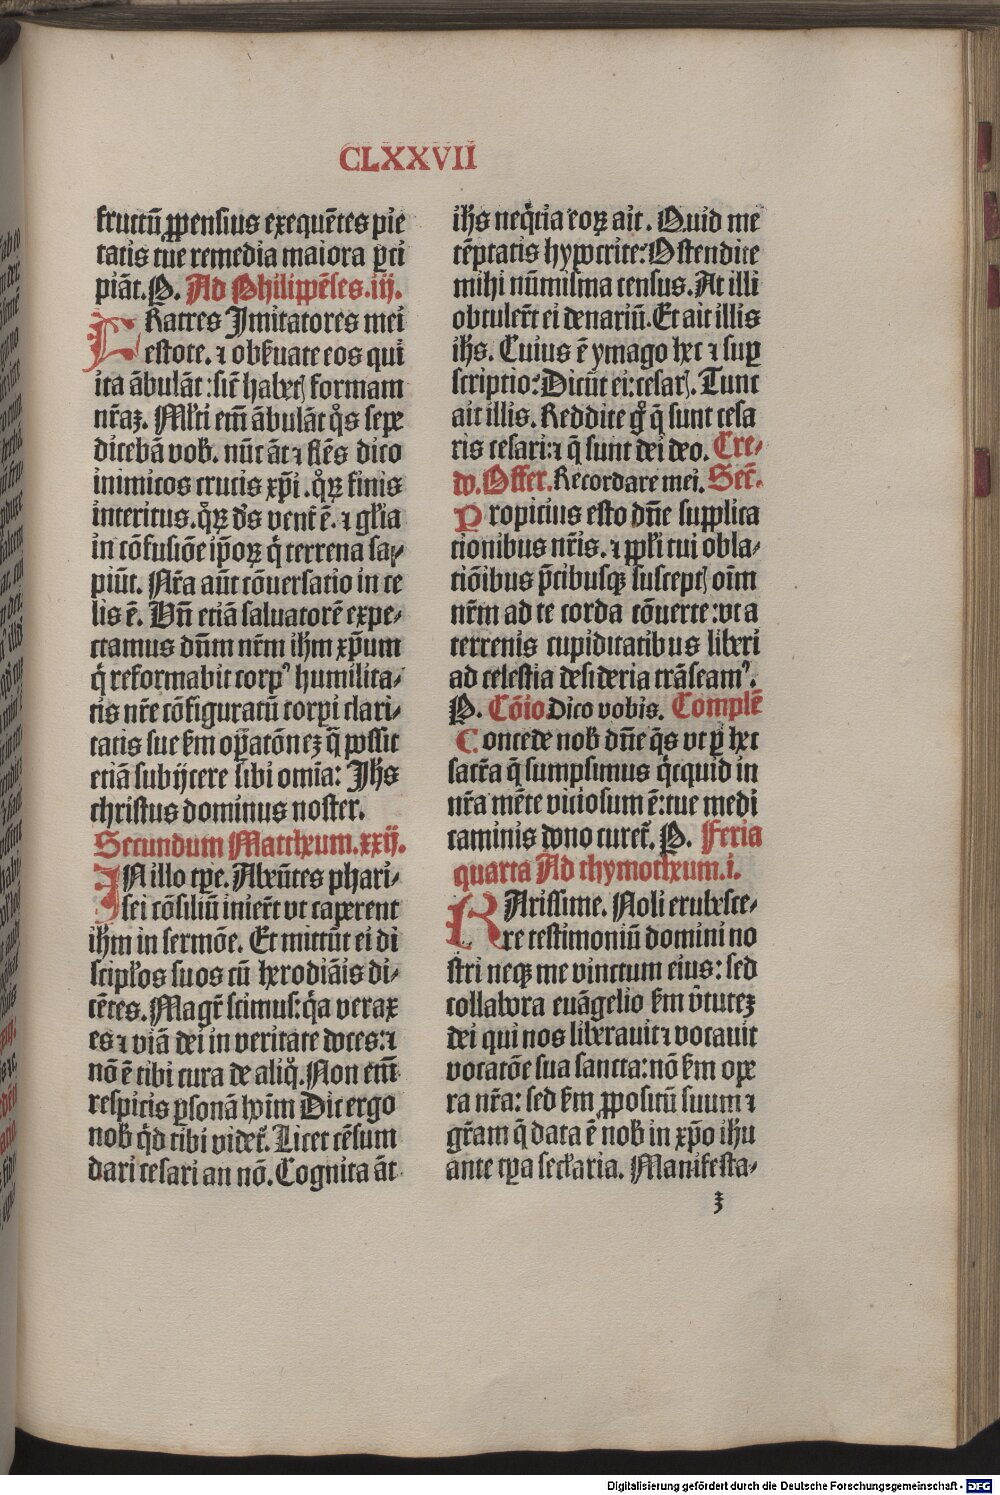 CLXXVII
fructū ꝓpensius exequētes pie
tatis tue remedia maiora ꝑci
piāt. P. Ad Philippēses .iij.
FRatres Imitatores mei
estote. ⁊ obẜuate eos qui
ita ābulāt: sic̄ habetꝭ formam
nr̄aꝫ. Ml̄ti em̄ ābulāt qͦs sepe
dicebā vob̄. nūc āt ⁊ flēs dico
inimicos crucis xp̄i. qͦꝝ finis
interitus. qͦꝝ dꝰs vent̄ ē. ⁊ gl̄ia
in cōfusiōe ip̄oꝝ q̇ terrena sa-
piūt. Nr̄a aūt cōuersatio in ce
lis ē. Vn̄ etiā saluatorē expe-
ctamus dūm nr̄m ihm xp̄um
q̇ reformabit corpꝰ humilita-
tis nr̄e cōfiguratū corpi clari-
tatis sue ẜm oꝑatōneꝫ q̄ possit
etiā subijcere sibi omīa: Jhs
christus dominus noster.
Secundum Mattheum .xxij.
IN illo tꝑe. Abeūtes phari-
sei cōsiliū inier̄t vt caperent
ihm in sermōe. Et mittūt ei di
scipl̄os suos cū herodiāis di-
cētes. Magr̄ scimus: q̇a verax
es ⁊ viā dei in veritate doces: ⁊
nō ē tibi cura de aliq̊. Non em̄
respicis ꝑsonā hoīm Dic ergo
nob̄ q̇d tibi videt̄. Licet cēsum
dari cesari an nō. Cognita āt
ihs neq̇tia eoꝝ ait. Quid me
tēptatis hypocrite: Ostendite
mihi nūmisma census. At illi
obtuler̄t ei denariū. Et ait illis
ihs. Cuius ē ymago hec ⁊ suꝑ
scriptio: Dicūt ei: cesarꝭ. Tunc
ait illis. Reddite gͦ q̄ sunt cesa
ris cesari: ⁊ q̄ sunt dei deo. Cre-
do. Offer. Recordare mei. Sec̄.
Propicius esto dn̄e supplica
tionibus nr̄is. ⁊ ppl̄i tui obla-
tiōibus p̄cibusqꝫ susceptꝭ oīm
nr̄m ad te corda cōuerte: vt a
terrenis cupiditatibus liberi
ad celestia desideria trāseamꝰ.
P. Cōio Dico vobis. Complē
Concede nob̄ dn̄e q̄s vt ꝑ hec
sacr̄a q̄ sumpsimus q̇cquid in
nr̄a mēte viciosum ē: tue medi
caminis dono curet̄. P. Feria
quarta Ad thymotheum .i.
KArissime. Noli erubesce-
re testimoniū domini no
stri neqꝫ me vinctum eius: sed
collabora euāgelio ẜm v̄tuteꝫ
dei qui nos liberauit ⁊ vocauit
vocatōe sua sancta: nō ẜm ope
ra nr̄a: sed ẜm ꝓpositū suum ⁊
gr̄am q̄ data ē nob̄ in xp̄o ihu
ante tꝑa sec̄laria. Manifesta-
ʒ
Digitalisierung gefördert durch die Deutsche Forschungsgemeinschaft - DFG